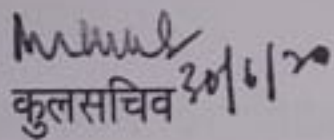 कुलसचिव 30/6/20